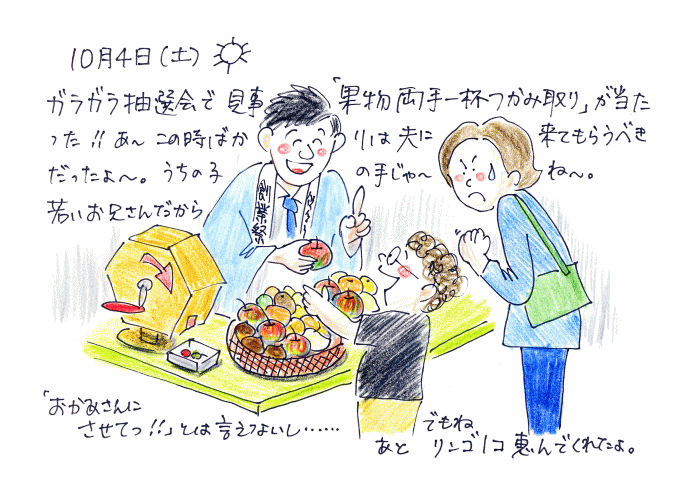 10月4日(土)
ガラガラ抽選会で見事「果物両手一杯つかみ取り」が当た
った!!あ〜この時ばかりは夫に来てもらうべき
だったよ〜。うちの子の手じゃ〜ね〜。
若いお兄さんだから
創業祭
「おかあさんに
させてっ!!」とは言えないし……
でもね
あとリンゴ1コ恵んでくれたよ。